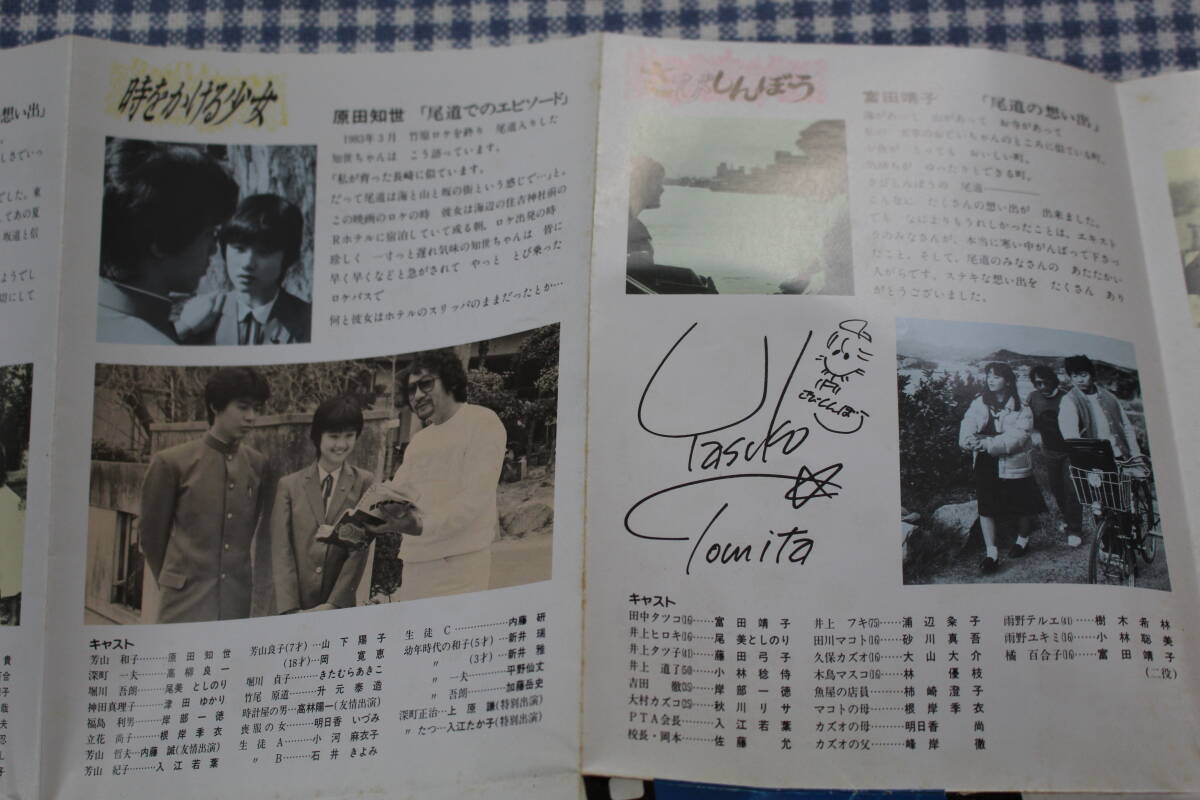 想い出」
しさでいっ
でした。東
してあの夏
坂道と信
ようでし
切にして
時をかける少女
原田知世 「尾道でのエピソード」
1983年3月 竹原ロケを終り 尾道入りした
知世ちゃんは こう語っています。
「私が育った長崎に似ています。
だって尾道は海と山と坂の街という感じで…」と。
この映画のロケの時 彼女は海辺の住吉神社前の
Rホテルに宿泊していて或る朝、ロケ出発の時
珍しく 一すっと遅れ気味の知世ちゃんは 皆に
早く早くなどと急がされて やっと とび乗った
ロケバスで
何と彼女はホテルのスリッパのままだったとか…
キャスト
芳山 和子………原田知世
深町 一夫………高柳良一
堀川 吾朗………尾美としのり
神田真理子………津田ゆかり
福島 利男………岸部一徳
立花 尚子………根岸季衣
芳山 哲夫…内藤 誠(友情出演)
芳山 紀子………入江若葉
芳山良子(7才)…山下陽子
〃(18才)…岡 寛恵
堀川 貞子………きたむらあきこ
竹尾 原道………升元泰造
時計屋の男…高林陽一(友情出演)
喪服の女………明日香いづみ
生徒A………小河麻衣子
〃 B………石井きよみ
生徒 C………内藤 研
幼年時代の和子(5才)…新井 瑞
〃 (3才)…新井 雅
〃 一夫………平野仙丈
〃 吾朗………加藤岳史
深町正治…上原 謙(特別出演)
〃 たつ…入江たか子(特別出演)
さびしんぼう
富田靖子 「尾道の想い出」
海があって 山があって お寺があって
私の 太宰のおじいちゃんのところに似ている町。
お魚が とっても おいしい町。
気持ちが ゆったりとできる町。
さびしんぼうの 尾道――――
こんなに たくさんの想い出が 出来ました。
でも なによりもうれしかったことは、エキスト
ラのみなさんが、本当に寒い中がんばって下さっ
たこと。そして、尾道のみなさんの あたたかい
人がらです。ステキな想い出を たくさん あり
がとうございました。
Yasuko
Tomita
さびしんぼう
キャスト
田中タツコ(16)……富田靖子
井上ヒロキ(16)……尾美としのり
井上タツ子(41)……藤田弓子
井上 道了(50)……小林稔侍
吉田 徹(35)……岸部一徳
大村カズコ(35)……秋川リサ
PTA会長………入江若葉
校長・岡本………佐藤 允
井上 フキ(75)……浦辺粂子
田川マコト(16)……砂川真吾
久保カズオ(16)……大山大介
木鳥マスコ(16)……林 優枝
魚屋の店員………柿崎澄子
マコトの母………根岸季衣
カズオの母………明日香 尚
カズオの父………峰岸 徹
雨野テルエ(41)…樹木希林
雨野ユキミ(16)…小林聡美
橘 百合子(16)…富田靖子
(二役)